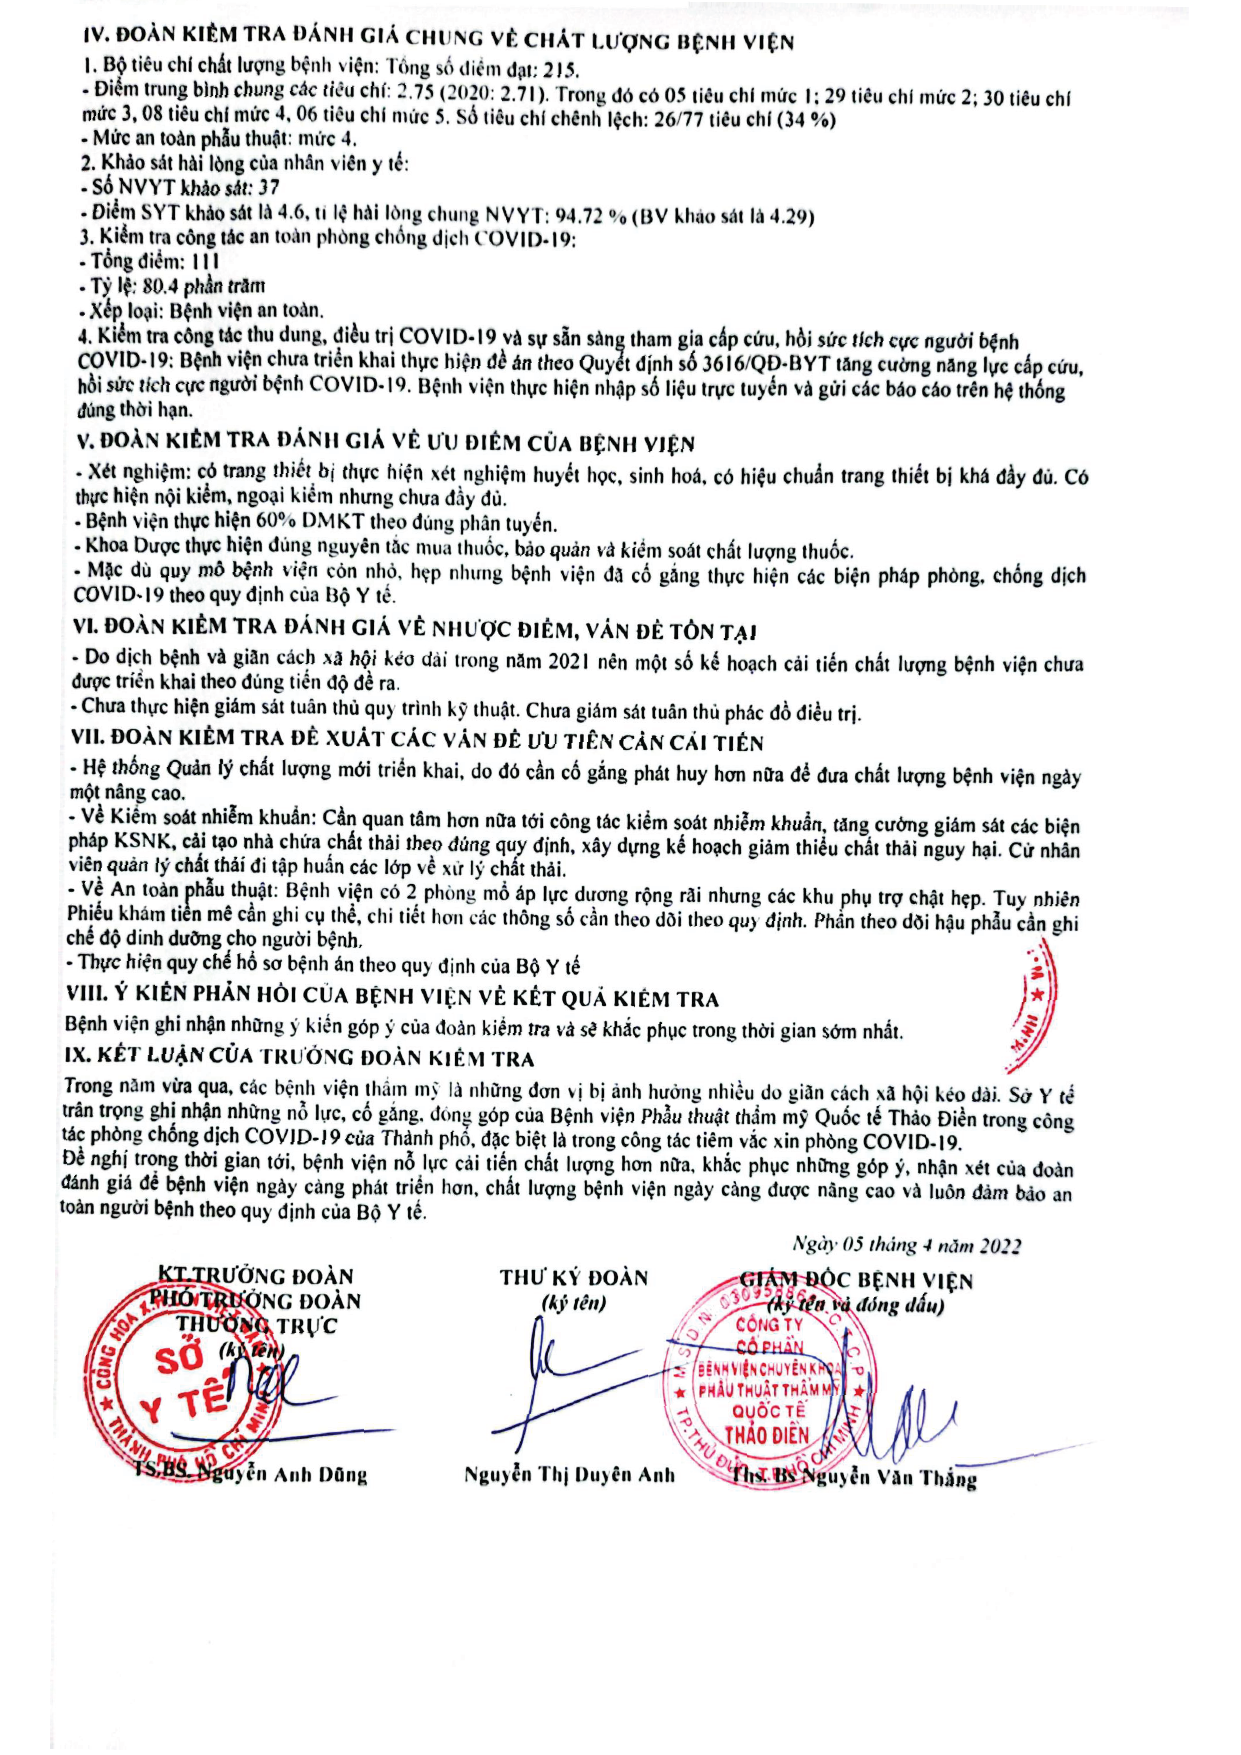 IV. ĐOÀN KIỂM TRA ĐÁNH GIÁ CHUNG VỀ CHẤT LƯỢNG BỆNH VIỆN
1. Bộ tiêu chí chất lượng bệnh viện: Tổng số điểm đạt: 215.
- Điểm trung bình chung các tiêu chí: 2.75 (2020: 2.71). Trong đó có 05 tiêu chí mức 1; 29 tiêu chí mức 2; 30 tiêu chí
mức 3, 08 tiêu chí mức 4, 06 tiêu chí mức 5. Số tiêu chí chênh lệch: 26/77 tiêu chí (34 %)
- Mức an toàn phẫu thuật: mức 4.
2. Khảo sát hài lòng của nhân viên y tế:
- Số NVYT khảo sát: 37
- Điểm SYT khảo sát là 4.6, tỉ lệ hài lòng chung NVYT: 94.72 % (BV khảo sát là 4.29)
3. Kiểm tra công tác an toàn phòng chống dịch COVID-19:
- Tổng điểm: 111
- Tỷ lệ: 80.4 phần trăm
- Xếp loại: Bệnh viện an toàn.
4. Kiểm tra công tác thu dung, điều trị COVID-19 và sự sẵn sàng tham gia cấp cứu, hồi sức tích cực người bệnh
COVID-19: Bệnh viện chưa triển khai thực hiện đề án theo Quyết định số 3616/QĐ-BYT tăng cường năng lực cấp cứu,
hồi sức tích cực người bệnh COVID-19. Bệnh viện thực hiện nhập số liệu trực tuyến và gửi các báo cáo trên hệ thống
đúng thời hạn.
V. ĐOÀN KIỂM TRA ĐÁNH GIÁ VỀ ƯU ĐIỂM CỦA BỆNH VIỆN
- Xét nghiệm: có trang thiết bị thực hiện xét nghiệm huyết học, sinh hoá, có hiệu chuẩn trang thiết bị khá đầy đủ. Có
thực hiện nội kiểm, ngoại kiểm nhưng chưa đầy đủ.
- Bệnh viện thực hiện 60% DMKT theo đúng phân tuyến.
- Khoa Dược thực hiện đúng nguyên tắc mua thuốc, bảo quản và kiểm soát chất lượng thuốc.
- Mặc dù quy mô bệnh viện còn nhỏ, hẹp nhưng bệnh viện đã cố gắng thực hiện các biện pháp phòng, chống dịch
COVID-19 theo quy định của Bộ Y tế.
VI. ĐOÀN KIỂM TRA ĐÁNH GIÁ VỀ NHƯỢC ĐIỂM, VẤN ĐỀ TỒN TẠI
- Do dịch bệnh và giãn cách xã hội kéo dài trong năm 2021 nên một số kế hoạch cải tiến chất lượng bệnh viện chưa
được triển khai theo đúng tiến độ đề ra.
- Chưa thực hiện giám sát tuân thủ quy trình kỹ thuật. Chưa giám sát tuân thủ phác đồ điều trị.
VII. ĐOÀN KIỂM TRA ĐỀ XUẤT CÁC VẤN ĐỀ ƯU TIÊN CẦN CẢI TIẾN
- Hệ thống Quản lý chất lượng mới triển khai, do đó cần cố gắng phát huy hơn nữa để đưa chất lượng bệnh viện ngày
một nâng cao.
- Về Kiểm soát nhiễm khuẩn: Cần quan tâm hơn nữa tới công tác kiểm soát nhiễm khuẩn, tăng cường giám sát các biện
pháp KSNK, cải tạo nhà chứa chất thải theo đúng quy định, xây dựng kế hoạch giảm thiểu chất thải nguy hại. Cử nhân
viên quản lý chất thải đi tập huấn các lớp về xử lý chất thải.
- Về An toàn phẫu thuật: Bệnh viện có 2 phòng mổ áp lực dương rộng rãi nhưng các khu phụ trợ chật hẹp. Tuy nhiên
Phiếu khám tiền mê cần ghi cụ thể, chi tiết hơn các thông số cần theo dõi theo quy định. Phần theo dõi hậu phẫu cần ghi
chế độ dinh dưỡng cho người bệnh.
- Thực hiện quy chế hồ sơ bệnh án theo quy định của Bộ Y tế
VIII. Ý KIẾN PHẢN HỒI CỦA BỆNH VIỆN VỀ KẾT QUẢ KIỂM TRA
Bệnh viện ghi nhận những ý kiến góp ý của đoàn kiểm tra và sẽ khắc phục trong thời gian sớm nhất.
IX. KẾT LUẬN CỦA TRƯỞNG ĐOÀN KIỂM TRA
Trong năm vừa qua, các bệnh viện thẩm mỹ là những đơn vị bị ảnh hưởng nhiều do giãn cách xã hội kéo dài. Sở Y tế
trân trọng ghi nhận những nỗ lực, cố gắng, đóng góp của Bệnh viện Phẫu thuật thẩm mỹ Quốc tế Thảo Điền trong công
tác phòng chống dịch COVID-19 của Thành phố, đặc biệt là trong công tác tiêm vắc xin phòng COVID-19.
Đề nghị trong thời gian tới, bệnh viện nỗ lực cải tiến chất lượng hơn nữa, khắc phục những góp ý, nhận xét của đoàn
đánh giá để bệnh viện ngày càng phát triển hơn, chất lượng bệnh viện ngày càng được nâng cao và luôn đảm bảo an
toàn người bệnh theo quy định của Bộ Y tế.
Ngày 05 tháng 4 năm 2022
KT.TRƯỞNG ĐOÀN
PHÓ TRƯỞNG ĐOÀN
THƯỜNG TRỰC
(ký tên)
SỞ
Y TẾ
THÀNH PHỐ HỒ CHÍ MINH
TS.BS. Nguyễn Anh Dũng
THƯ KÝ ĐOÀN
(ký tên)
Nguyễn Thị Duyên Anh
GIÁM ĐỐC BỆNH VIỆN
(ký tên và đóng dấu)
CÔNG TY
CỔ PHẦN
BỆNH VIỆN CHUYÊN KHOA
PHẪU THUẬT THẨM MỸ
QUỐC TẾ
THẢO ĐIỀN
Ths. Bs Nguyễn Văn Thắng